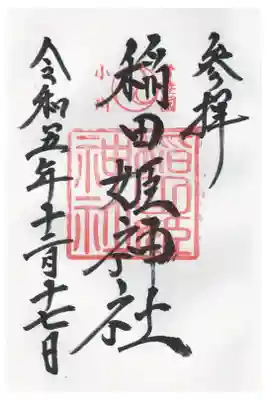 参拝
稲田姫神社
稲田姫
神社
令和五年十二月十七日